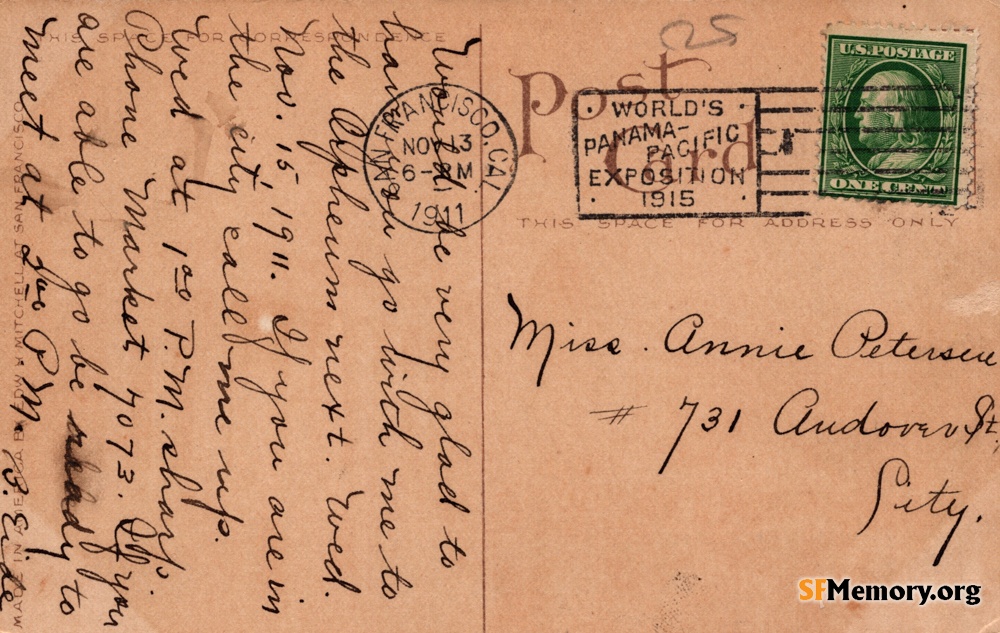 THIS SPACE FOR CORRESPONDENCE
Would be very glad to
have you go with me to
the Orpheum next. Wed.
Nov. 15, 1911. If you are in
the city call me up.
Wed at 1 00 P.M. sharp.
Phone Market 7073. If you
are able to go be ready to
meet at 2 00 P M.
MADE IN AMERICA BY EDW H MITCHELL AT SAN FRANCISCO
25
Post
Card
SAN FRANCISCO, CAL
NOV 13
6 - M
1911
WORLD'S
PANAMA-
PACIFIC
EXPOSITION
1915
U.S. POSTAGE
ONE CENT
THIS SPACE FOR ADDRESS ONLY
Miss. Annie Petersen
# 731 Andover St.
City.
SFMemory.org